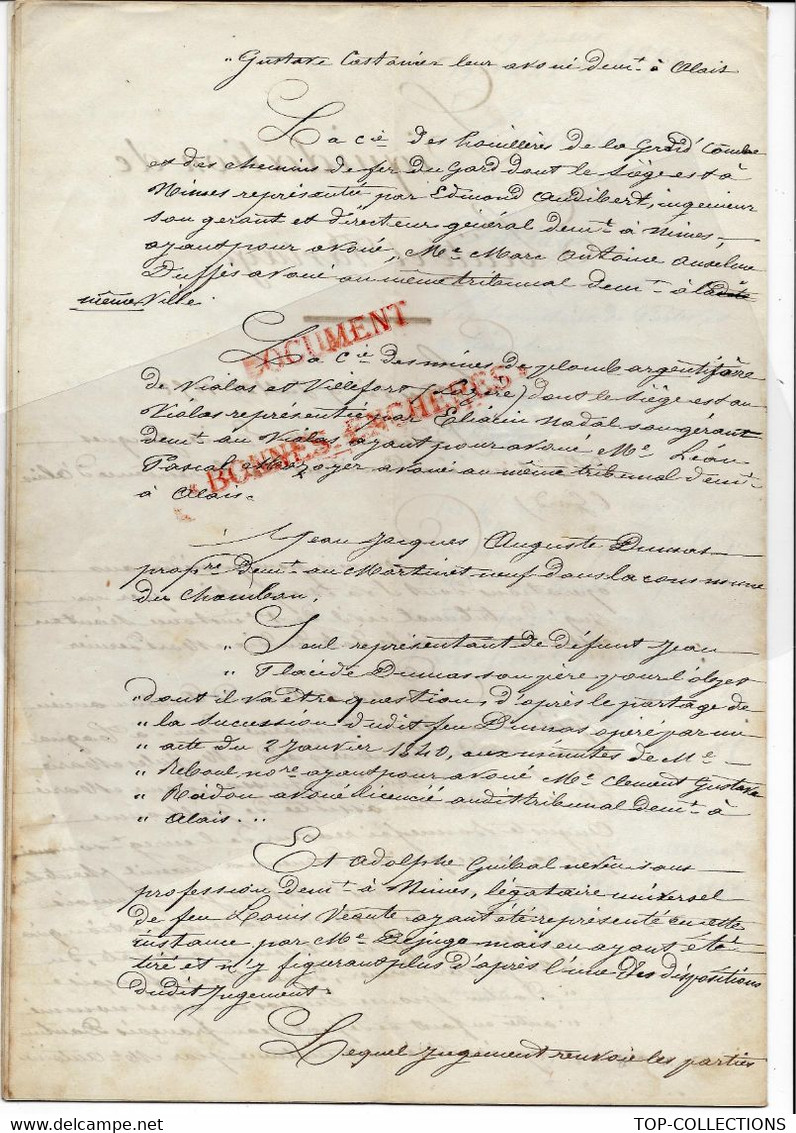 " Gustave Castanier leur avoué demt à Alais
La cie des houillères de la Grd Combe
et des chemins de fer du Gard dont le siège est à
Nimes représentée par Edmond Audibert, ingenieur
son gerant et directeur général demt à Nimes,
ayant pour avoué, Me Marc Antoine Anselme
Duffès avoué au même tribunal demt à ladite
même Ville.
DOCUMENT
La Cie des mines de plomb argentifère
de Vialas et Villefort (Lozère) dont le siège est au
Vialas représentée par Eliacin Nadal son gérant
demt au Vialas ayant pour avoué Me Léon
BONNES-ENCHERES
Pascal avoué au même tribunal demt
à Alais.
Jean Jacques Auguste Dumas
propre demt au Martinet neuf dans la commune
du Chambon,
" Seul représentant de défunt Jean
" Placide Dumas son père pour l'objet
" dont il va être question, d'après le partage de
" la sucession dudit feu Dumas opéré par un
" acte du 2 Janvier 1840, aux minutes de Me
" Reboul nore ayant pour avoué Me Clement Gustave
" Roidou avoué licencié audit tribunal demt à
" Alais...
Et Adolphe Guibal neveu sans
profession demt à Nimes, légataire universel
de feu Louis Veaute ayant été représenté en cette
instance par Me Dejuge mais en ayant été
tiré et n'y figurant plus d'après l'une des dispositions
dudit Jugement.
Lequel Jugement renvoie les parties
TOP-COLLECTIONS